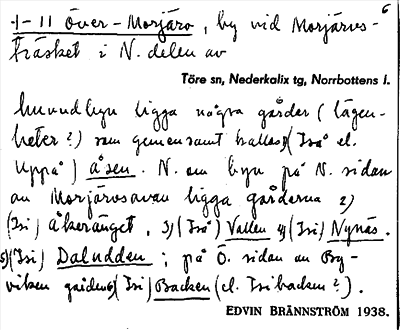 6
-1- 11 Över-Morjäro, by vid Morjärvs-
träsket i N. delen av
Töre sn, Nederkalix tg, Norrbottens l.
huvudbyn ligga några gårder (lägen-
heter?) som gemensamt kallas 1) (Iså el.
Uppå) åsen. N. om byn på N. sidan
av Morjärvsavan ligga gårderna 2)
(Isi) åkeränget, 3) (Iså) Vallen 4) (Isi) Nynäs.
5) (Isi) Daludden ; på Ö. sidan av By-
viken gården 6) (Isi) Backen (el. Isibacken?).
EDVIN BRÄNNSTRÖM 1938.